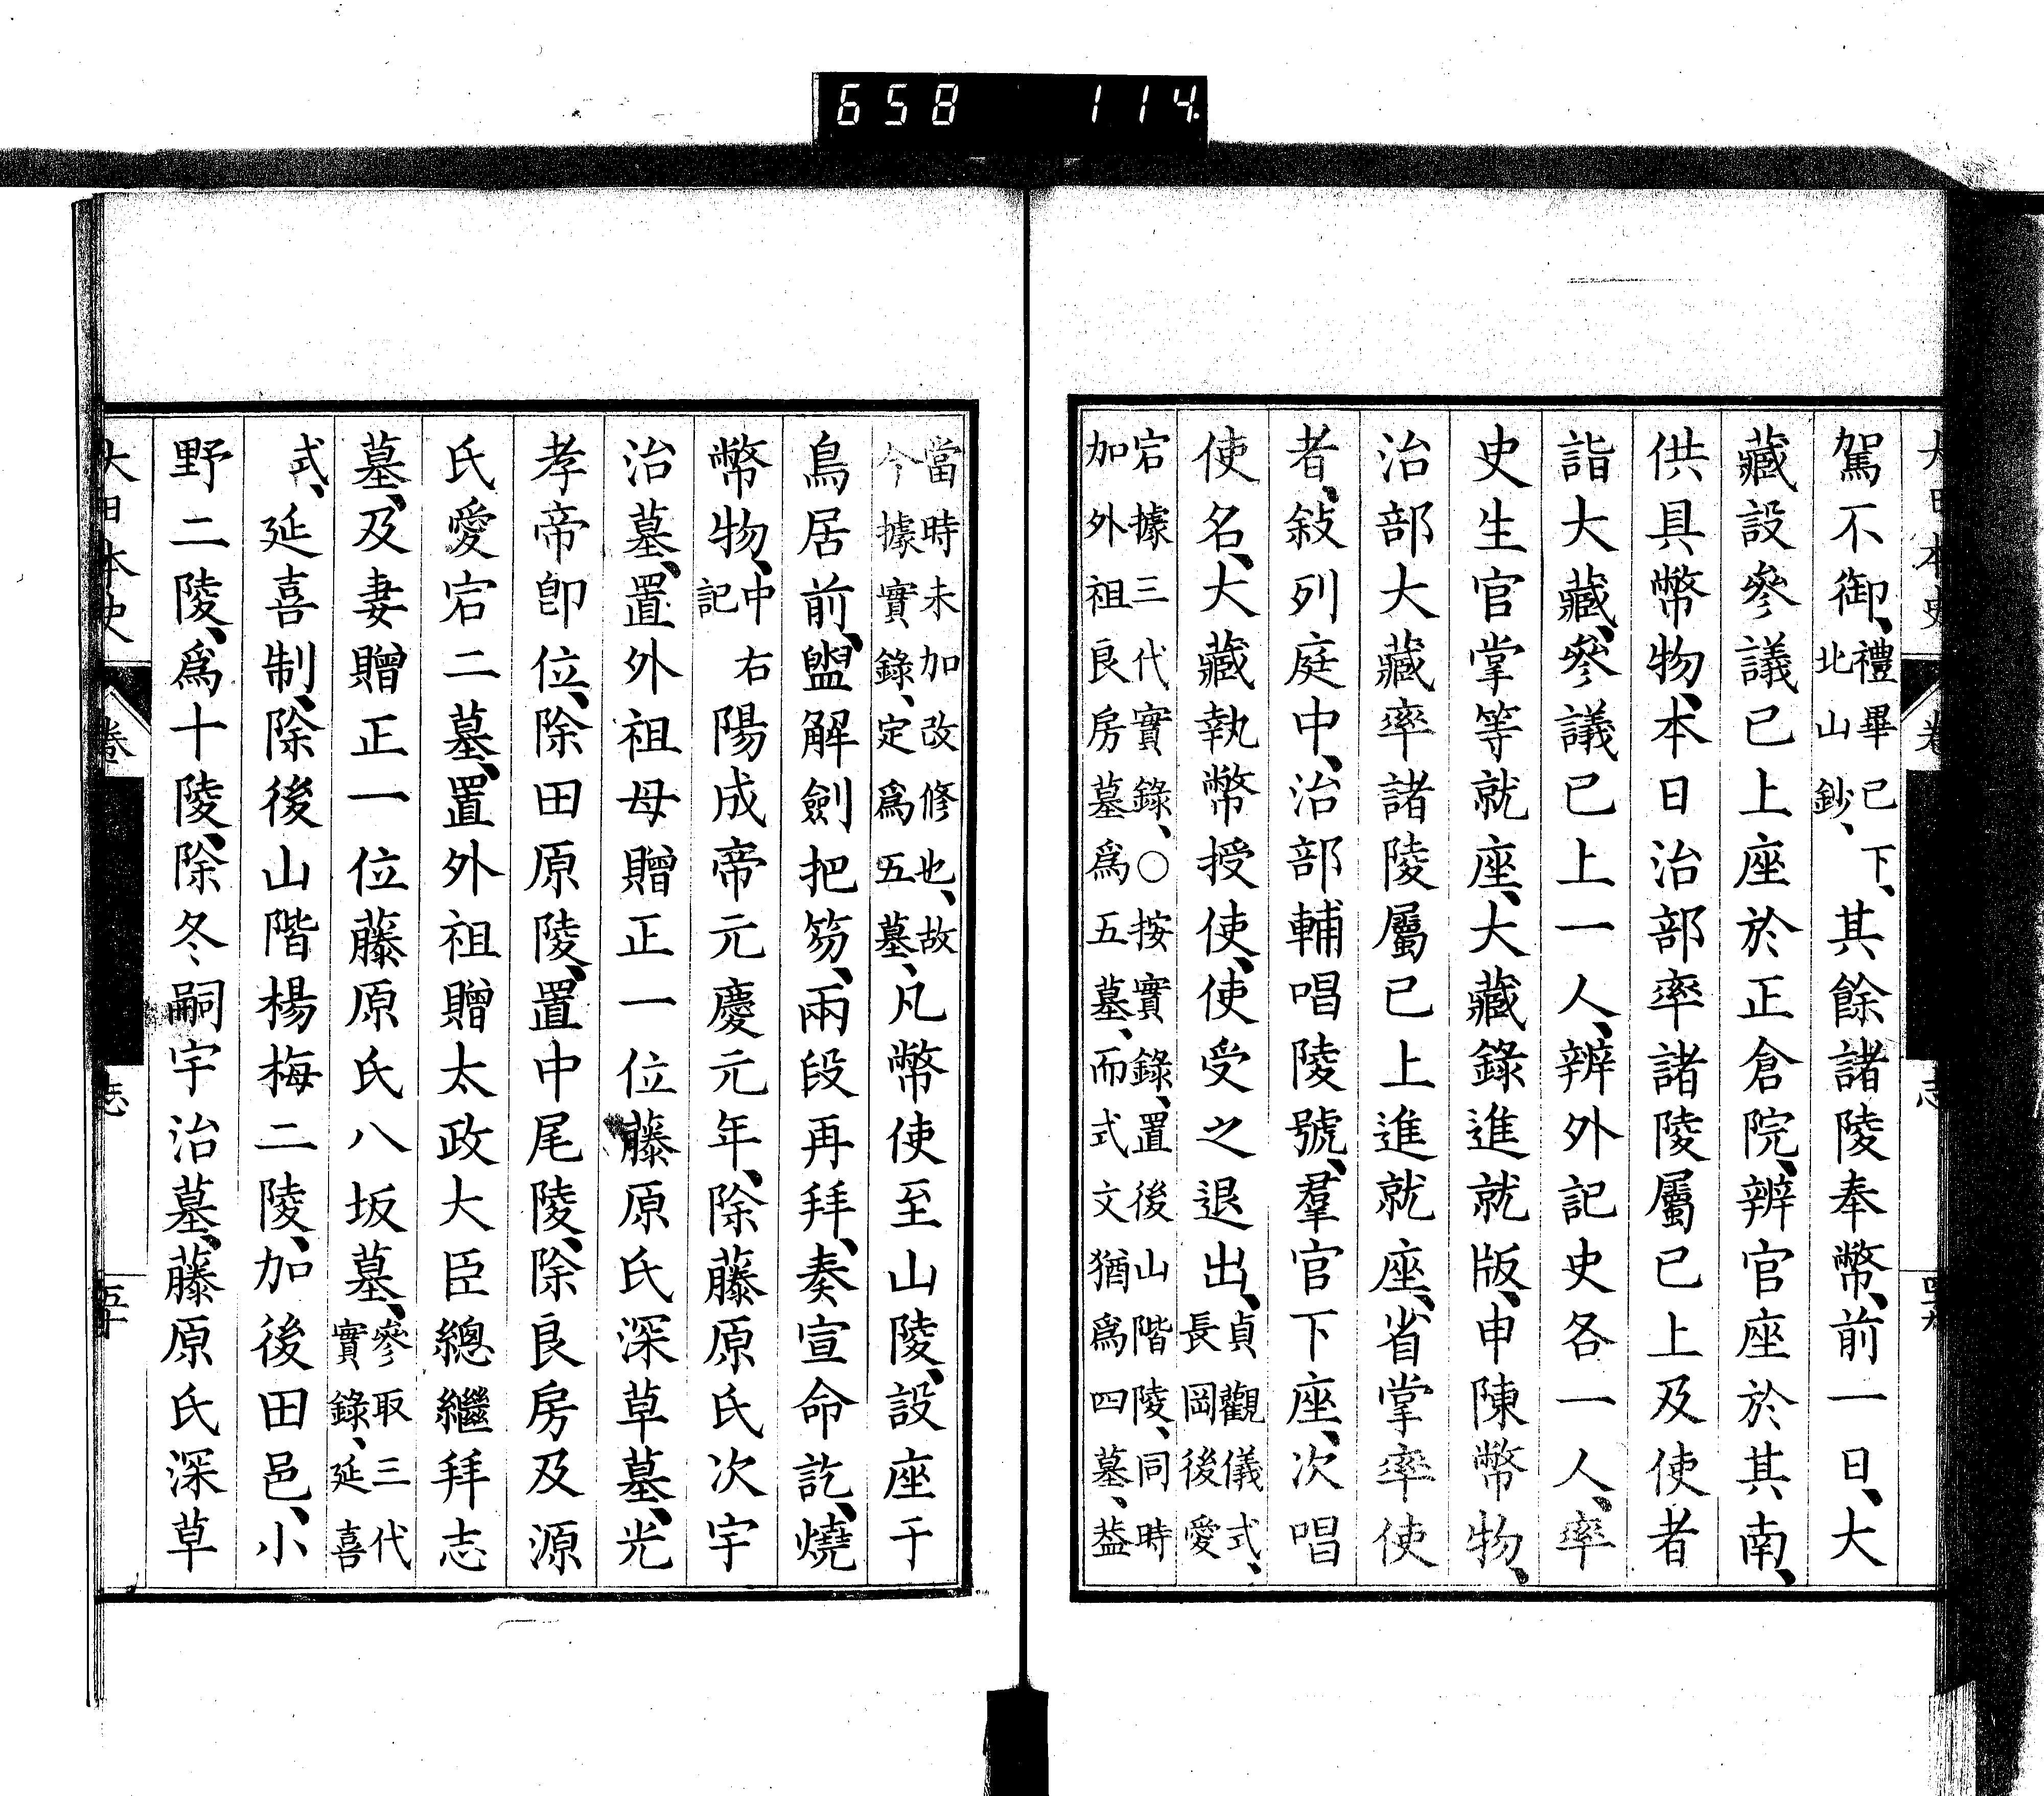 658 114.
大日本史 卷 志 四九
駕不御、禮畢已下、北山鈔、其餘諸陵奉幣、前一日、大
藏設參議已上座於正倉院、辨官座於其南、
供具幣物、本日治部率諸陵屬已上及使者
詣大藏、參議已上一人、辨外記史各一人、率
史生官掌等就座、大藏錄進就版、申陳幣物、
治部大藏率諸陵屬已上進就座、省掌率使
者、敍列庭中、治部輔唱陵號、羣官下座、次唱
使名、大藏執幣授使、使受之退出、貞觀儀式、長岡後愛
宕據三代實錄、○按實錄、置後山階陵、同時
加外祖良房墓爲五墓、而式文猶爲四墓、葢
當時未加改修也、故
今據實錄、定爲五墓、凡幣使至山陵、設座于
鳥居前、盥解劍把笏、兩段再拜、奏宣命訖、燒
幣物、中右記陽成帝元慶元年、除藤原氏次宇
治墓、置外祖母贈正一位藤原氏深草墓、光
孝帝卽位、除田原陵、置中尾陵、除良房及源
氏愛宕二墓、置外祖贈太政大臣總繼拜志
墓、及妻贈正一位藤原氏八坂墓、參取三代實錄、延喜
式、延喜制、除後山階楊梅二陵、加後田邑、小
野二陵、爲十陵、除冬嗣宇治墓、藤原氏深草
大日本史 卷 志 五十